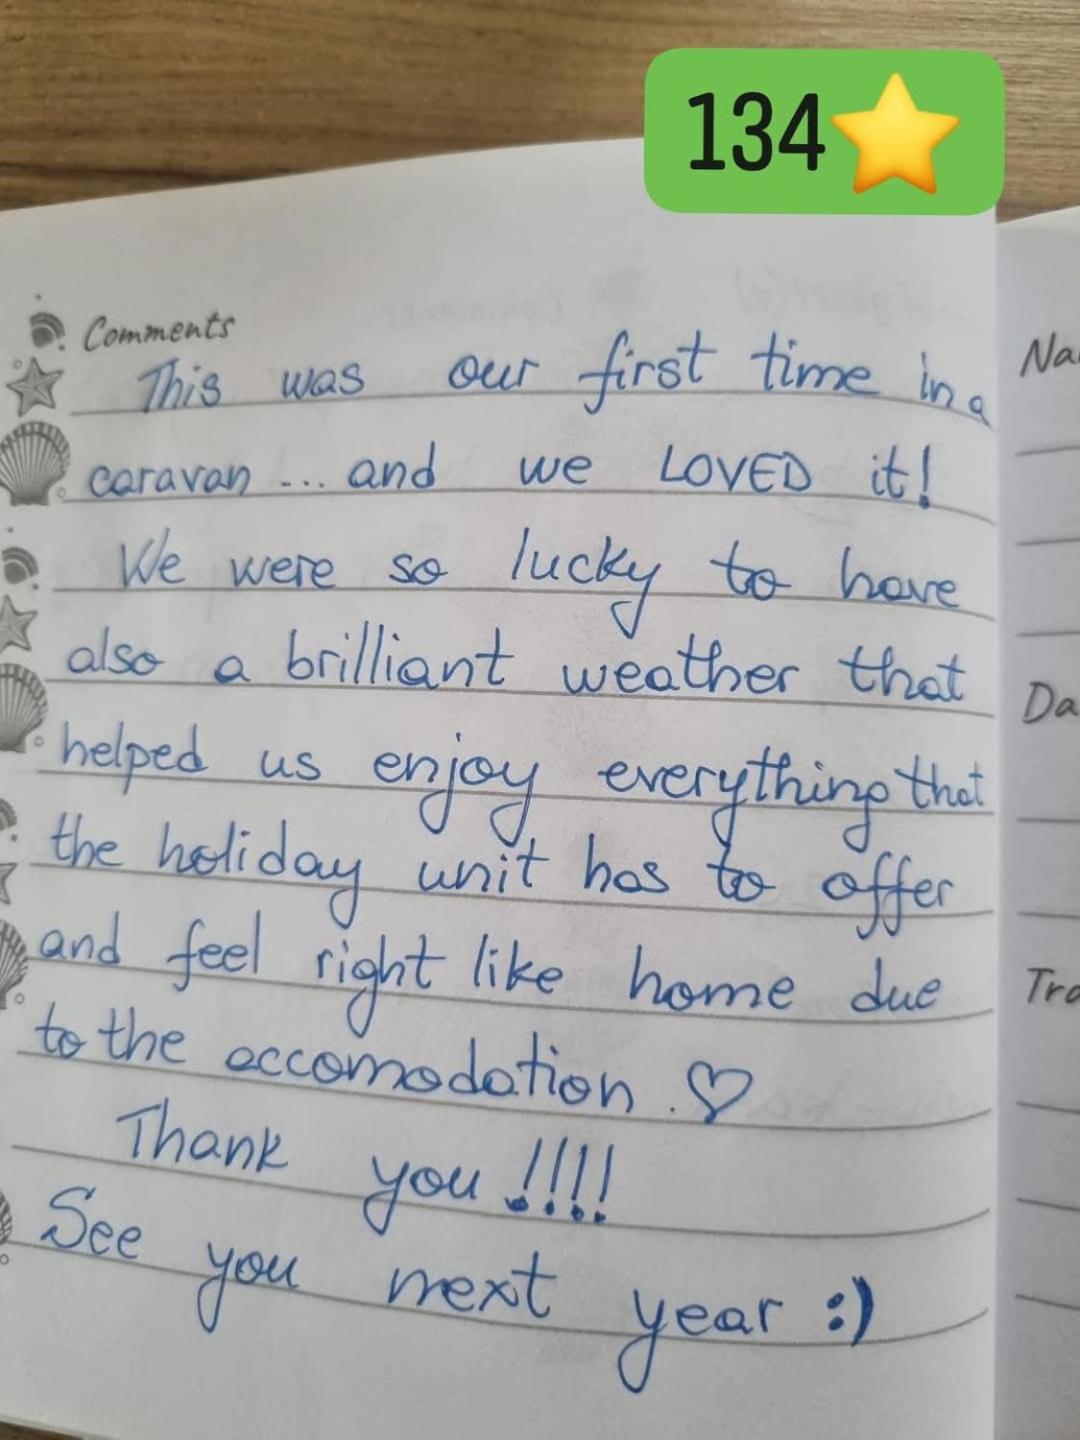 134⭐
Comments
This was our first time in a
caravan ... and we LOVED it!
We were so lucky to have
also a brilliant weather that
helped us enjoy everything that
the holiday unit has to offer
and feel right like home due
to the accomodation. ♡
Thank you !!!!
See you next year :)
Na
Da
Tra